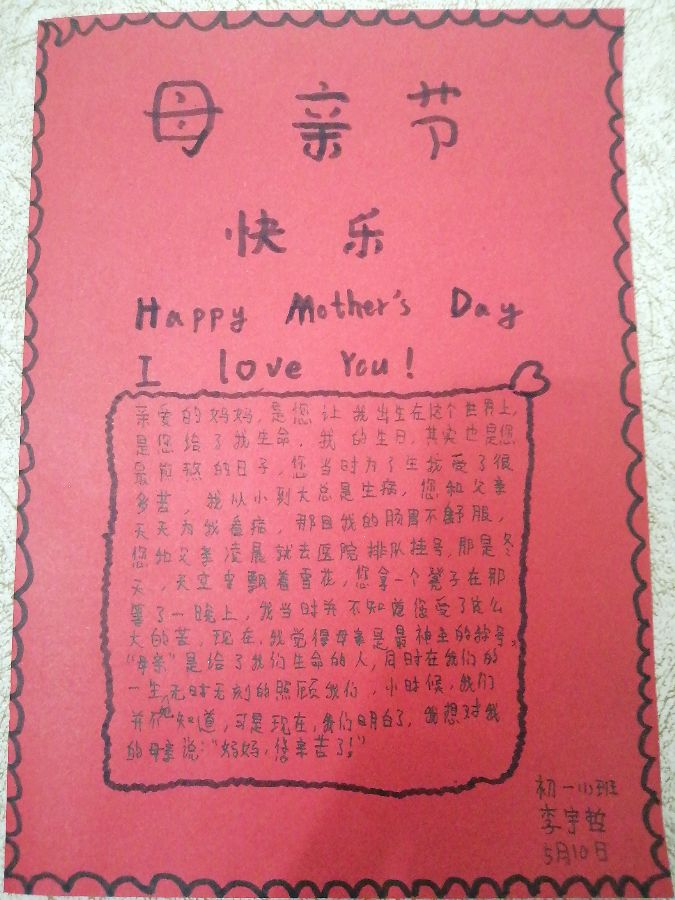 母亲节
快乐
Happy Mother's Day
I love You!
亲爱的妈妈,是您让我出生在这个世界上,
是您给了我生命,我的生日,其实也是您
最煎熬的日子,您当时为了生我受了很
多苦,我从小到大总是生病,您和父亲
天天为我看病,那日我的肠胃不舒服,
您和父亲凌晨就去医院排队挂号,那是冬
天,天空中飘着雪花,您拿一个凳子在那
等了一晚上,我当时并不知道您受了这么
大的苦,现在,我觉得母亲是最神圣的称号。
“母亲”是给了我们生命的人,同时在我们的
一生无时无刻的照顾我们,小时候,我们
并不知道,可是现在,我们明白了,我想对我
的母亲说:“妈妈,您亲苦了!”
初一班
李宇哲
5月10日